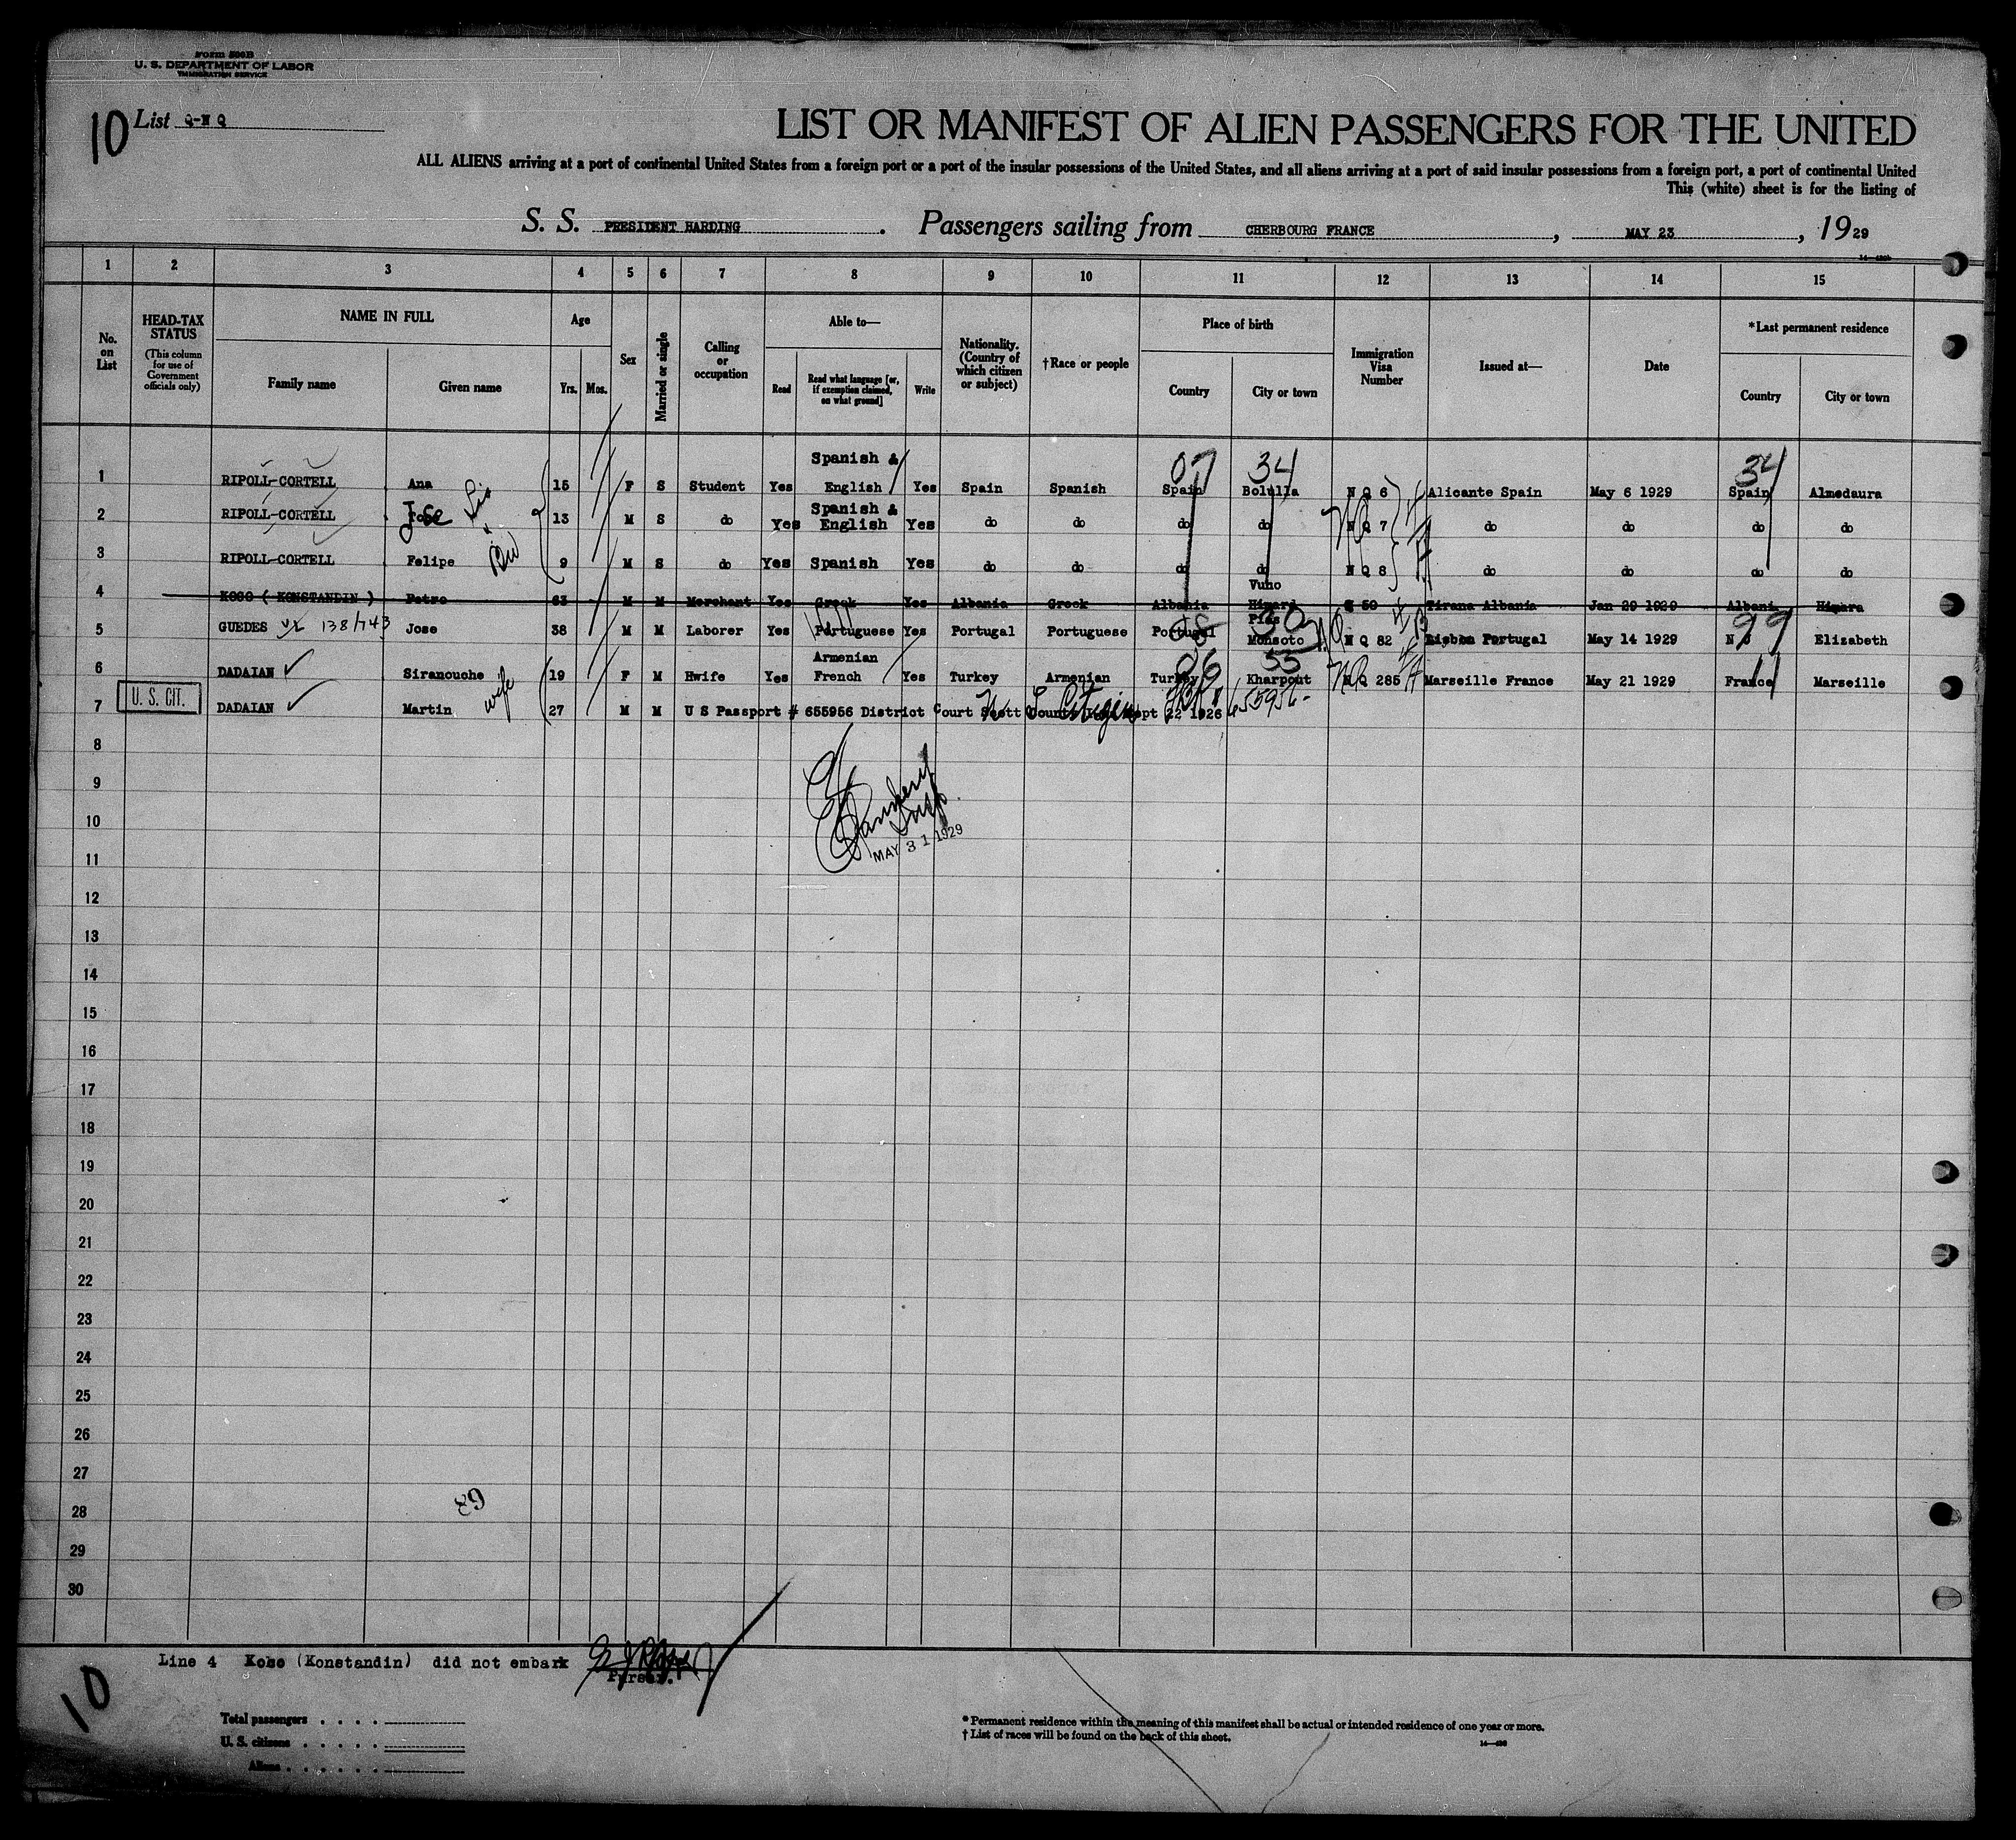 Form 500B
U. S. DEPARTMENT OF LABOR
IMMIGRATION SERVICE
10 List Q-N Q
LIST OR MANIFEST OF ALIEN PASSENGERS FOR THE UNITED
ALL ALIENS arriving at a port of continental United States from a foreign port or a port of the insular possessions of the United States, and all aliens arriving at a port of said insular possessions from a foreign port, a port of continental United
This (white) sheet is for the listing of
S. S. PRESIDENT HARDING . Passengers sailing from CHERBOURG FRANCE , MAY 23 , 1929
1 2 3 4 5 6 7 8 9 10 11 12 13 14 15
No. on List
HEAD-TAX STATUS (This column for use of Government officials only)
NAME IN FULL
Family name
Given name
Age
Yrs. Mos.
Sex
Married or single
Calling or occupation
Able to—
Read
Read what language [or, if exemption claimed, on what ground]
Write
Nationality. (Country of which citizen or subject)
†Race or people
Place of birth
Country
City or town
Immigration Visa Number
Issued at—
Date
*Last permanent residence
Country
City or town
07 34 34
1 RIPOLL-CORTELL Ana 15 F S Student Yes Spanish & English Yes Spain Spanish Spain Bolulla N Q 6 Alicante Spain May 6 1929 Spain Almedaura
2 RIPOLL-CORTELL Jose 13 M S do Yes Spanish & English Yes do do do do NQ N Q 7 do do do do
3 RIPOLL-CORTELL Felipe 9 M S do Yes Spanish Yes do do do do N Q 8 do do do do
4 KOSO ( KONSTANDIN ) Petro 63 M M Merchant Yes Greek Yes Albania Greek Albania Vuno Himara 50 Tirana Albania Jan 29 1929 Albani Himara
5 GUEDES 138/743 Jose 38 M M Laborer Yes Portuguese Yes Portugal Portuguese Portugal Monsoto N Q 82 Lisbon Portugal May 14 1929 N J 99 Elizabeth
6 DADAIAN Siranouche 19 F M Hwife Yes Armenian French Yes Turkey Armenian Turkey 06 Kharpout 55 NQ N Q 285 Marseille France May 21 1929 France 11 Marseille
U. S. CIT.
7 DADAIAN Martin wife 27 M M U S Passport # 655956 District Court Scott County Sept 22 1926 Citizen 655956
8
9
10
MAY 31 1929
11
12
13
14
15
16
17
18
19
20
21
22
23
24
25
26
27
28
29
30
Line 4 Koso (Konstandin) did not embark
Purser.
10
Total passengers . . . .
U. S. citizens . . . . .
Aliens . . . . . .
* Permanent residence within the meaning of this manifest shall be actual or intended residence of one year or more.
† List of races will be found on the back of this sheet.